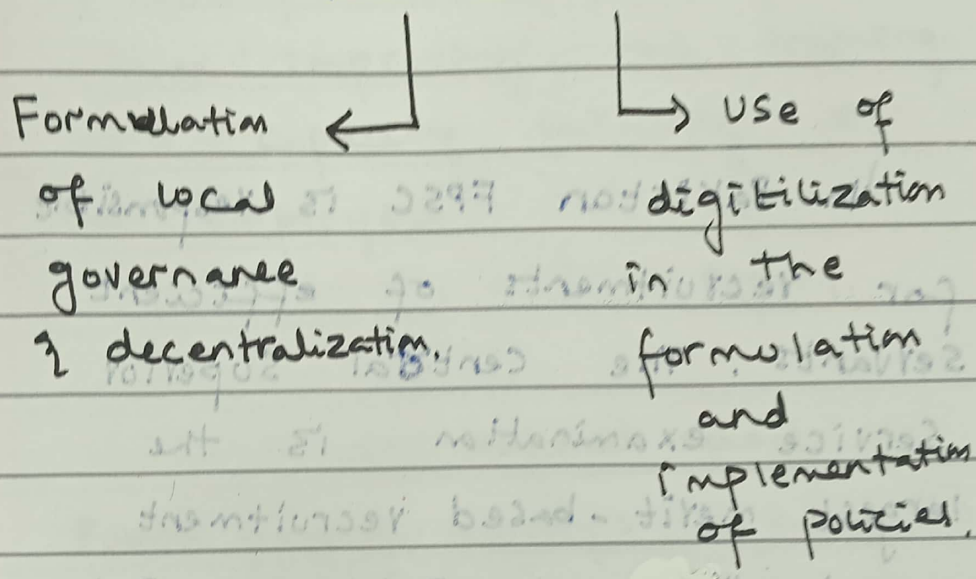 Formulation
of local
governance
& decentralization.
Use of
digitilization
in the
formulation
and
implementation
of policies.